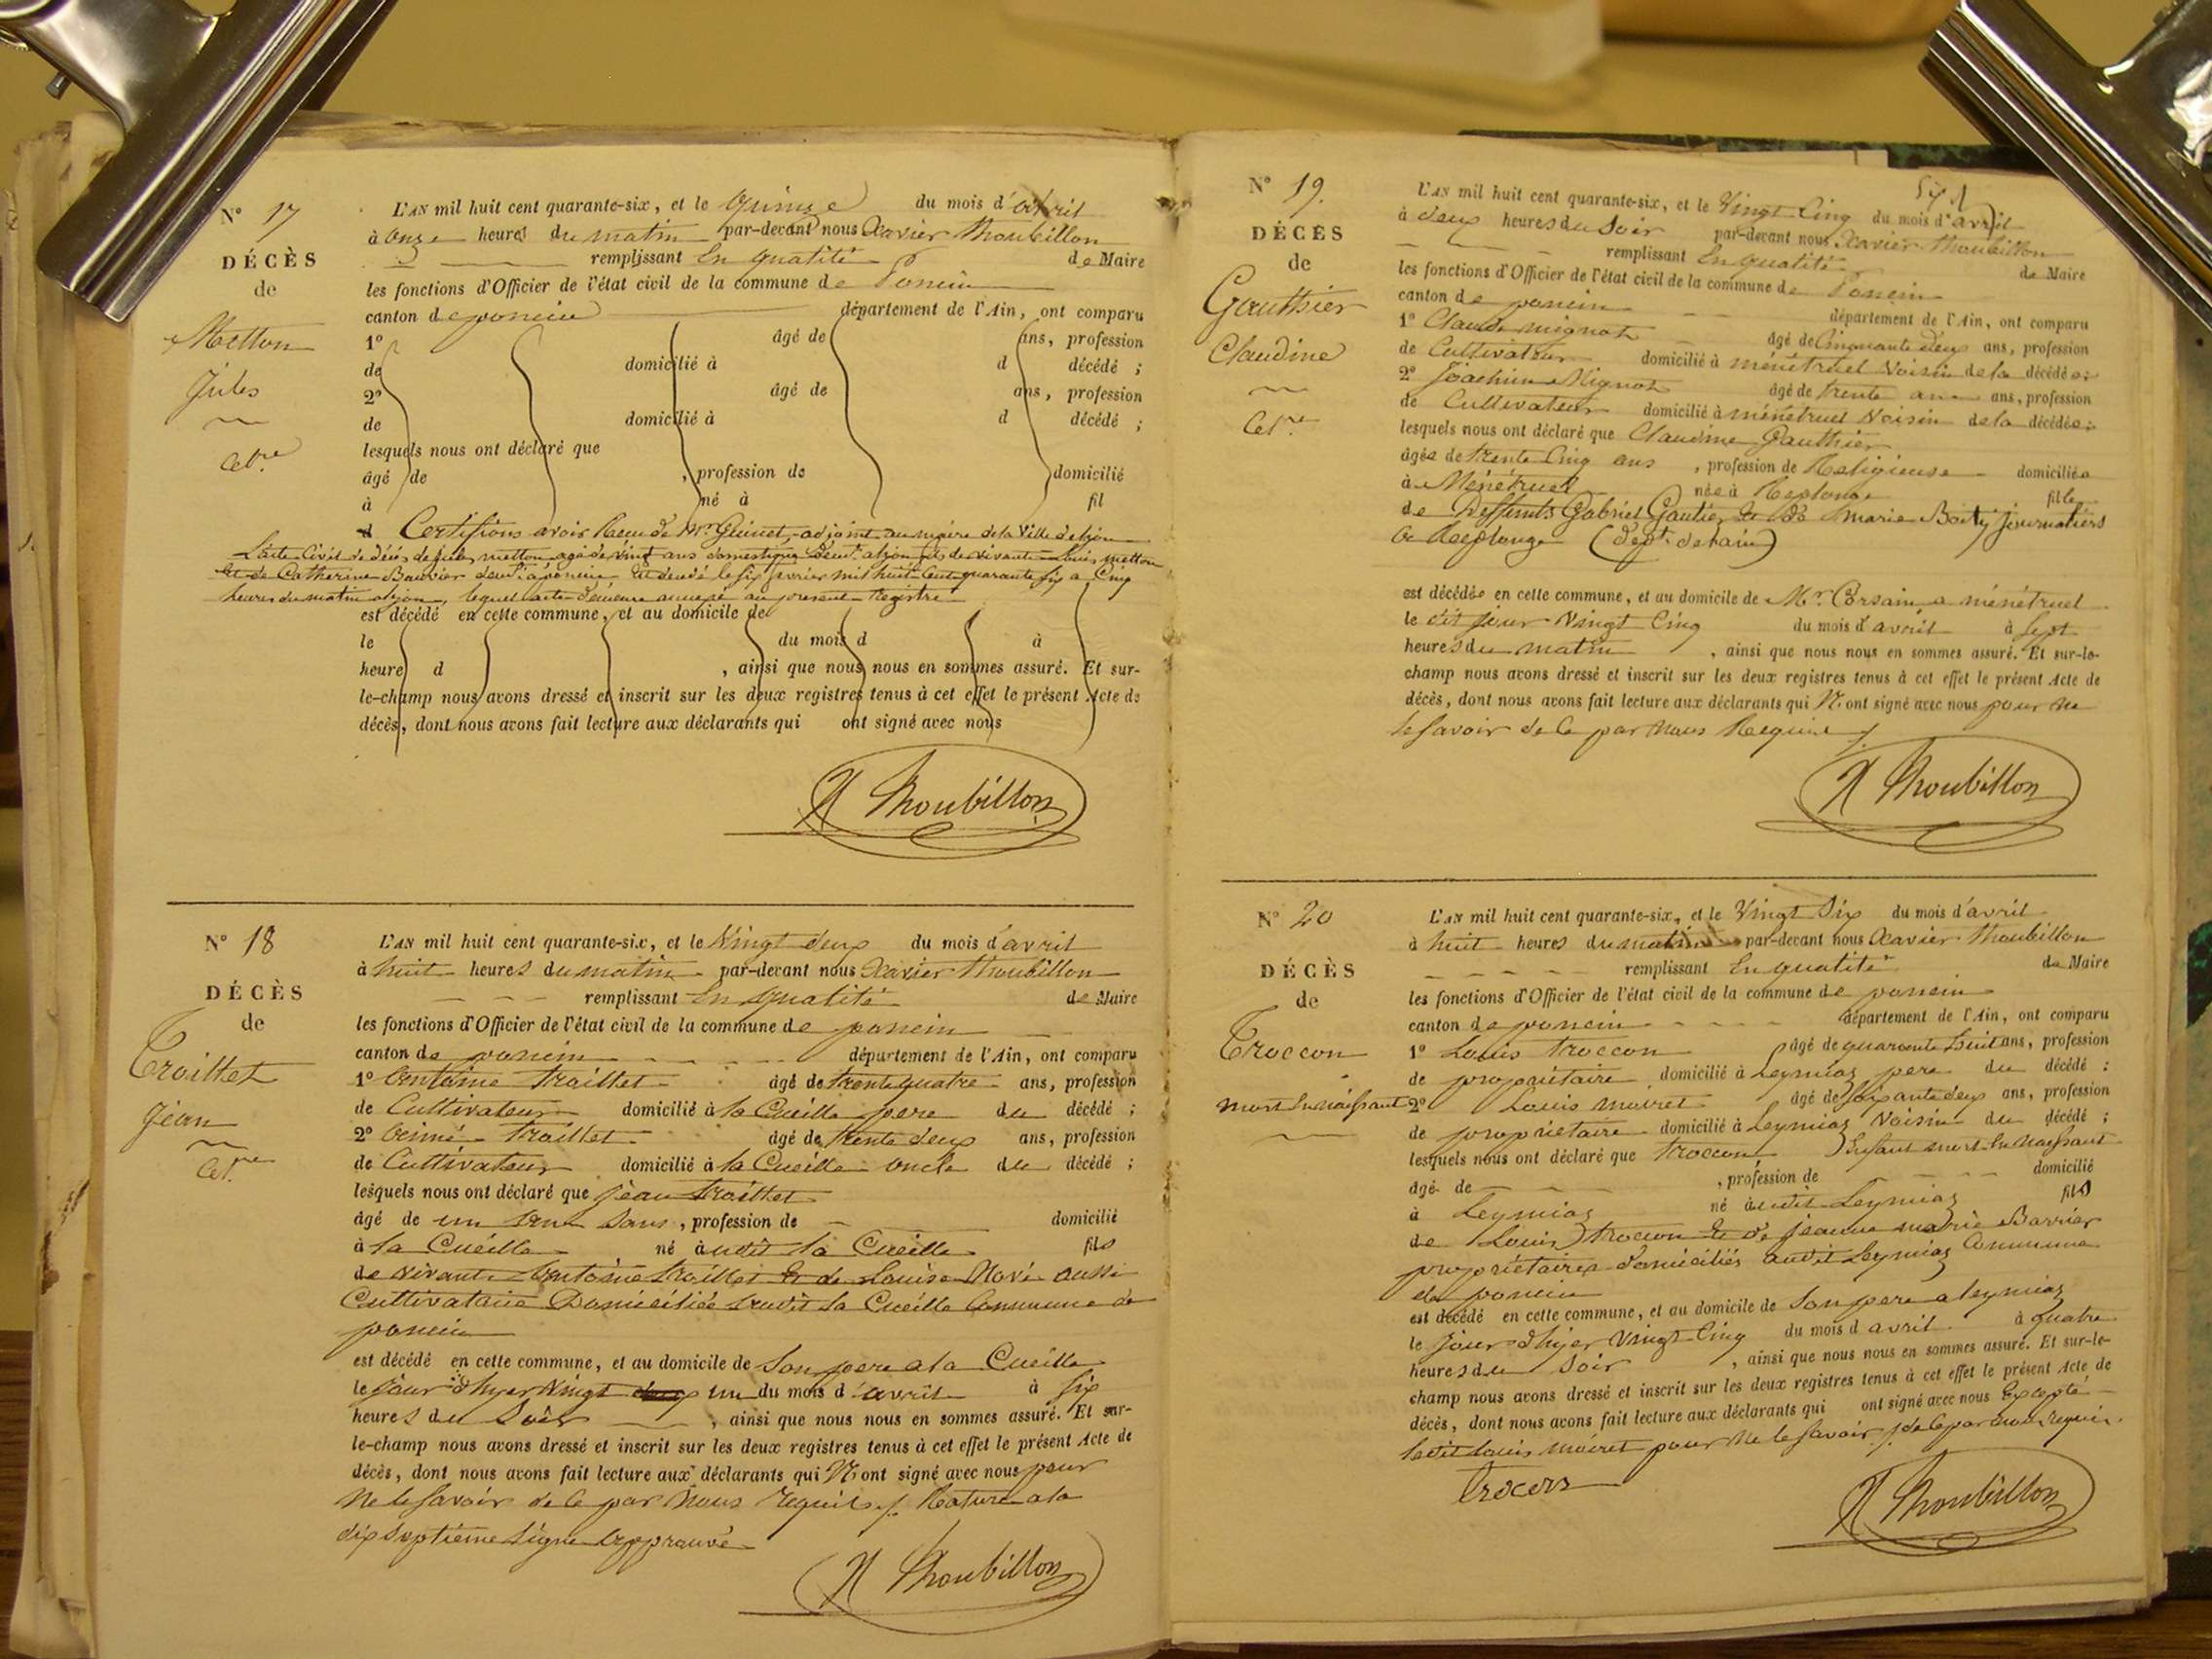 N° 17
DÉCÈS
de
Metton
Jules
Cel.re
L'AN mil huit cent quarante-six, et le Quinze du mois d'avril
à onze heures du matin par-devant nous Xavier Thoubillon
remplissant En qualité de Maire
les fonctions d'Officier de l'état civil de la commune de Poncin
canton de poncin département de l'Ain, ont comparu
1° âgé de ans, profession
de domicilié à d décédé ;
2° âgé de ans, profession
de domicilié à d décédé ;
lesquels nous ont déclaré que
âgé de , profession de domicilié
à né à fil
d Certifions avoir Recu de Mr Guinet, adjoint au maire de la Ville de lyon
L'acte Civil de décés de jules metton agé de vingt ans domestique demt. a lyon fils de vivants Louis metton
Et de Catherine Bouvier demt. a poncin Est decedé le six fevrier mil huit Cent quarante six a Cinq
heures du matin a lyon, lequel acte demeure annexé au present Registre
est décédé en cette commune, et au domicile de
le du mois d à
heure d , ainsi que nous nous en sommes assuré. Et sur-
le-champ nous avons dressé et inscrit sur les deux registres tenus à cet effet le présent Acte de
décès, dont nous avons fait lecture aux déclarants qui ont signé avec nous
X Thoubillon
N° 18
DÉCÈS
de
Troillet
Jean
Cel.re
L'AN mil huit cent quarante-six, et le Vingt deux du mois d'avril
à huit heures du matin par-devant nous Xavier Thoubillon
remplissant En qualité de Maire
les fonctions d'Officier de l'état civil de la commune de poncin
canton de poncin département de l'Ain, ont comparu
1° Antoine Troillet âgé de trente quatre ans, profession
de Cultivateur domicilié à la Cueille pere du décédé ;
2° Aimé Troillet âgé de trente deux ans, profession
de Cultivateur domicilié à la Cueille oncle du décédé ;
lesquels nous ont déclaré que jean troillet
âgé de un an , profession de domicilié
à la Cueille né audit la Cueille fils
de vivants Antoine troillet Et de Louise Novi aussi
Cultivataire Domiciliée audit la Cueille Commune de
poncin
est décédé en cette commune, et au domicile de Son pere a la Cueille
le jour d'hyer Vingt un du mois d'avril à six
heures du Soir , ainsi que nous nous en sommes assuré. Et sur-
le-champ nous avons dressé et inscrit sur les deux registres tenus à cet effet le présent Acte de
décès, dont nous avons fait lecture aux déclarants qui N'ont signé avec nous pour
Ne le Savoir de Ce par Nous requis ./. Rature a la
dix septième Ligne Approuvé
X Thoubillon
N° 19.
DÉCÈS
de
Gauthier
Claudine
Cel.re
L'AN mil huit cent quarante-six, et le Vingt Cinq du mois d'avril
à deux heures du Soir par-devant nous Xavier Thoubillon
remplissant En qualité de Maire
les fonctions d'Officier de l'état civil de la commune de Poncin
canton de poncin département de l'Ain, ont comparu
1° Claude mignot âgé de Cinquante deux ans, profession
de Cultivateur domicilié à ménétruel Voisin de la décédée ;
2° Joachim Mignot âgé de trente ans ans, profession
de Cultivateur domicilié à ménétruel Voisin de la décédée ;
lesquels nous ont déclaré que Claudine Gauthier
âgée de trente Cinq ans , profession de Religieuse domiciliée
à Ménétruel née à Replonge fille
de Deffunts Gabriel Gautier Et de marie Boity journaliers
a Replonge (dept. de lain)
est décédée en cette commune, et au domicile de Mr. Corsain a ménétruel
le dit jour Vingt Cinq du mois d'avril à Sept
heures du matin , ainsi que nous nous en sommes assuré. Et sur-le-
champ nous avons dressé et inscrit sur les deux registres tenus à cet effet le présent Acte de
décès, dont nous avons fait lecture aux déclarants qui N'ont signé avec nous pour Ne
le Savoir de Ce par Nous Requis ./.
X Thoubillon
N° 20
DÉCÈS
de
Troccon
mort En naissant
L'AN mil huit cent quarante-six, et le Vingt Six du mois d'avril
à huit heures du matin par-devant nous Xavier Thoubillon
remplissant En qualité de Maire
les fonctions d'Officier de l'état civil de la commune de poncin
canton de poncin département de l'Ain, ont comparu
1° Louis Troccon âgé de quarante huit ans, profession
de propriétaire domicilié à Leymiaz pere du décédé ;
2° Louis moiret âgé de soixante deux ans, profession
de propriétaire domicilié à Leymiaz Voisin du décédé ;
lesquels nous ont déclaré que troccon Enfant mort En Naissant
âgé de , profession de domicilié
à Leymiaz né audit Leymiaz fils
de Louis troccon Et de jeanne marie Barrier
propriétaires domiciliés audit Leymiaz Commune
de poncin
est décédé en cette commune, et au domicile de Son pere a leymiaz
le jour d'hyer Vingt Cinq du mois d avril à quatre
heures du Soir , ainsi que nous nous en sommes assuré. Et sur-le-
champ nous avons dressé et inscrit sur les deux registres tenus à cet effet le présent Acte de
décès, dont nous avons fait lecture aux déclarants qui ont signé avec nous Excepté
ledit Louis moiret pour Ne le Savoir ./. de Ce par nous requis.
Trocon
X Thoubillon